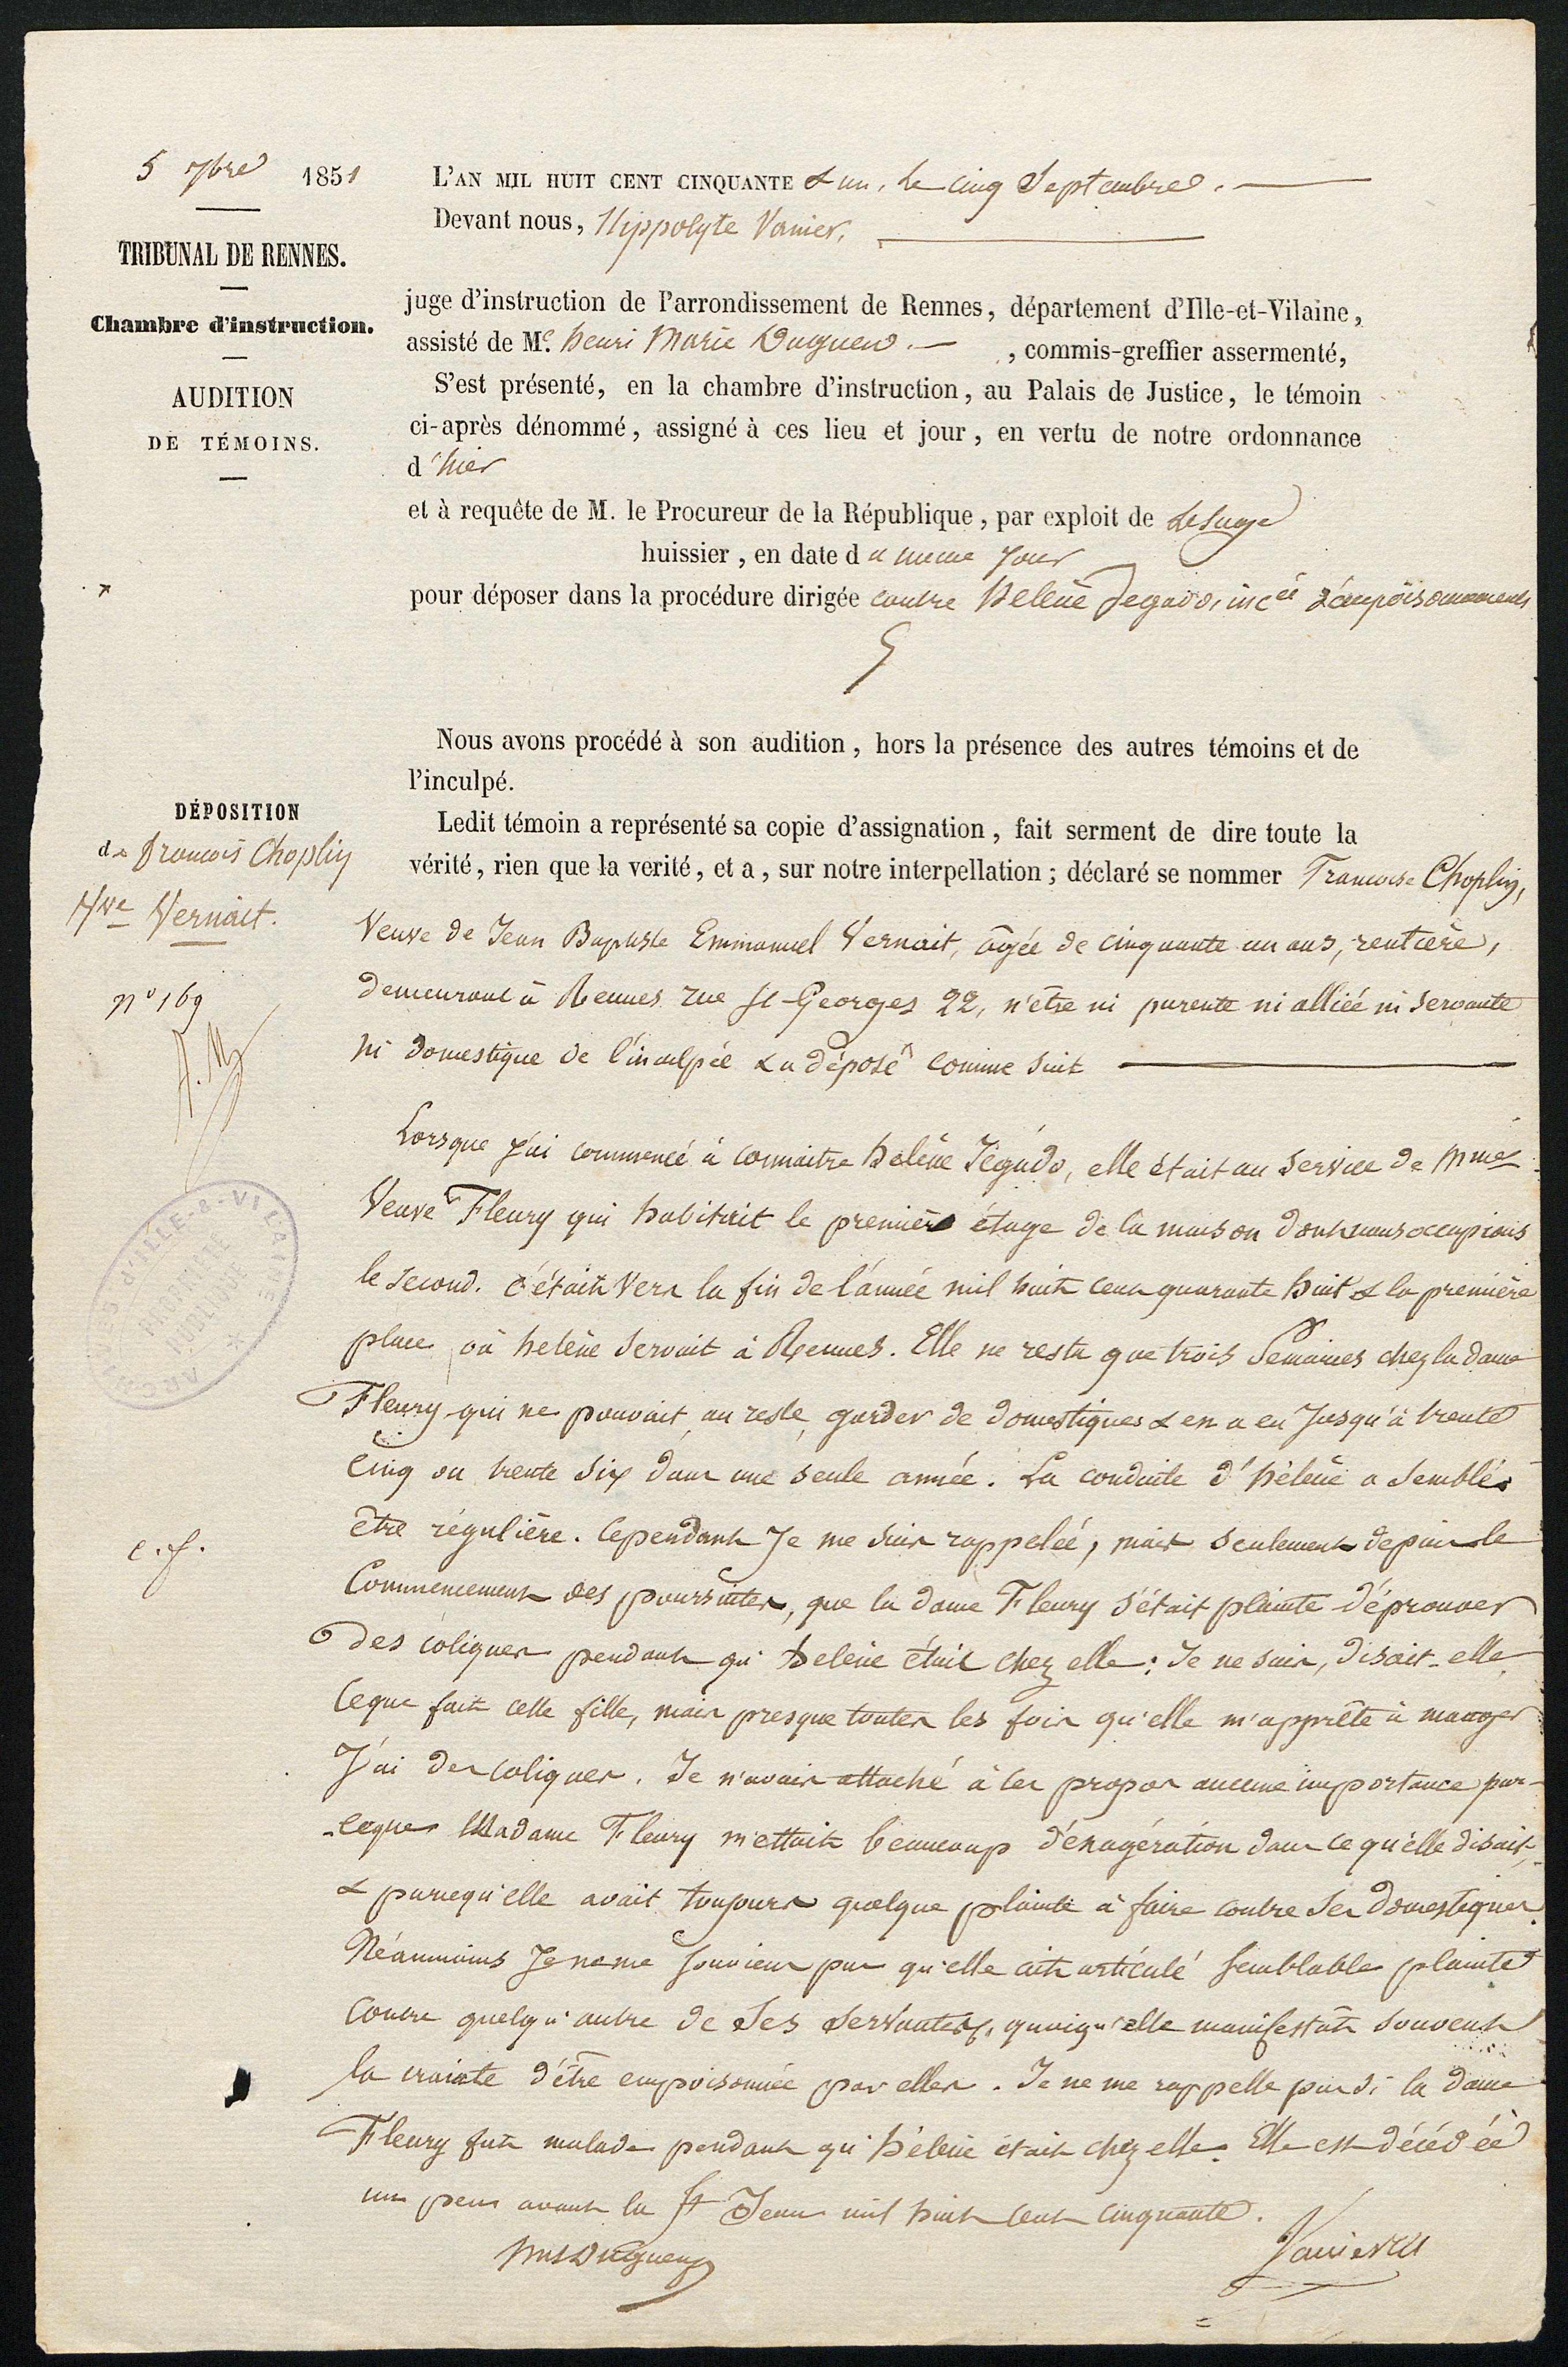 5 7bre 1851
TRIBUNAL DE RENNES.
Chambre d'instruction.
AUDITION
DE TÉMOINS.
L'AN MIL HUIT CENT CINQUANTE & un, le cinq Septembre.
Devant nous, Hippolyte Vanier,
juge d'instruction de l'arrondissement de Rennes, département d'Ille-et-Vilaine,
assisté de Me. henri Marie Duguen. , commis-greffier assermenté,
S'est présenté, en la chambre d'instruction, au Palais de Justice, le témoin
ci-après dénommé, assigné à ces lieu et jour, en vertu de notre ordonnance
d'hier
et à requête de M. le Procureur de la République, par exploit de Lesage
huissier, en date du meme jour
pour déposer dans la procédure dirigée contre helène Jegado, incée d'empoisonnements
Nous avons procédé à son audition, hors la présence des autres témoins et de
l'inculpé.
DÉPOSITION
de francois Choplin
Vve Vernait.
n° 169
Ledit témoin a représenté sa copie d'assignation, fait serment de dire toute la
vérité, rien que la verité, et a, sur notre interpellation; déclaré se nommer Francoise Choplin,
Veuve de Jean Baptiste Emmanuel Vernait, âgée de cinquante un ans, rentière,
demeurant à Rennes rue St-Georges 22, n'être ni parente ni alliée ni servante
ni domestique de l'inculpée & a déposé comme suit
Lorsque j'ai commencé à connaitre hélène Jégado, elle était au service de Mme
Veuve Fleury qui habitait le premier étage de la maison dont nous occupions
le second. c'était vers la fin de l'année mil huit cent quarante huit & la première
place où helène servait à Rennes. Elle ne resta que trois semaines chez la dame
Fleury qui ne pouvait, au reste, garder de domestiques & en a eu jusqu'à trente
cinq ou trente six dans une seule année. La conduite d'hélène a semblé
être régulière. Cependant Je me suis rappelée, mais seulement depuis le
Commencement des poursuites, que la dame Fleury s'était plainte d'éprouver
des coliques pendant qu'helène était chez elle: Je ne sais, disait-elle
ce que fait cette fille, mais presque toutes les fois qu'elle m'apprête à manger
J'ai des coliques. Je n'avais attaché à ces propos aucune importance par-
-ceque Madame Fleury mettait beaucoup d'exagération dans ce qu'elle disait,
& parcequ'elle avait toujours quelque plainte à faire contre ses domestiques.
Néanmoins Je ne me souviens pas qu'elle ait articulé semblable plainte
contre quelqu'autre de ses servantes, quoiqu'elle manifestât souvent
la crainte d'être empoisonnée par elles. Je ne me rappelle pas si la dame
Fleury fut malade pendant qu'hélène était chez elle. Elle est décédée
un peu avant la St Jean mil huit cent cinquante.
c.f.
hMDuguen
Vanier
ARCHIVES d'ILLE-&-VILAINE
PROPRIÉTÉ
PUBLIQUE